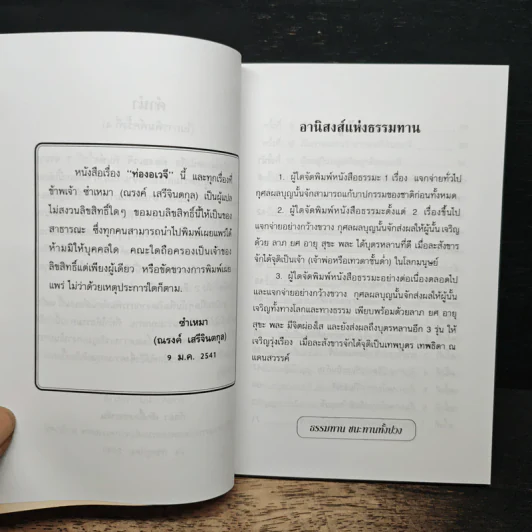 หนังสือเรื่อง "ท่องอเวจี" นี้ และทุกเรื่องที่
ข้าพเจ้า ซำเหมา (ณรงค์ เสรีจินตกุล) เป็นผู้แปล
ไม่สงวนลิขสิทธิ์ใดๆ ขอมอบลิขสิทธิ์นี้ให้เป็นของ
สาธารณะ ซึ่งทุกคนสามารถนำไปพิมพ์เผยแพร่ได้
ห้ามมิให้บุคคลใด คณะใดถือครองเป็นเจ้าของ
ลิขสิทธิ์แต่เพียงผู้เดียว หรือขัดขวางการพิมพ์เผย
แพร่ ไม่ว่าด้วยเหตุประการใดก็ตาม.
ซำเหมา
(ณรงค์ เสรีจินตกุล)
9 ม.ค. 2541
อานิสงส์แห่งธรรมทาน
1. ผู้ใดจัดพิมพ์หนังสือธรรมะ 1 เรื่อง แจกจ่ายทั่วไป
กุศลผลบุญนั้นจักสามารถแก้บาปกรรมของชาติก่อนทั้งหมด
2. ผู้ใดจัดพิมพ์หนังสือธรรมะตั้งแต่ 2 เรื่องขึ้นไป
แจกจ่ายอย่างกว้างขวาง กุศลผลบุญนั้นจักส่งผลให้ผู้นั้น เจริญ
ด้วย ลาภ ยศ อายุ สุขะ พละ ได้บุตรหลานที่ดี เมื่อละสังขาร
จักได้จุติเป็นเจ้า (เจ้าพ่อหรือเทวดาชั้นต่ำ) ในโลกมนุษย์
3. ผู้ใดจัดพิมพ์หนังสือธรรมะอย่างต่อเนื่องตลอดไป
และแจกจ่ายอย่างกว้างขวาง กุศลผลบุญนั้นจักส่งผลให้ผู้นั้น
เจริญทั้งทางโลกและทางธรรม เพียบพร้อมด้วยลาภ ยศ อายุ
สุขะ พละ มีจิตผ่องใส และยังส่งผลถึงบุตรหลานอีก 3 รุ่น ให้
เจริญรุ่งเรือง เมื่อละสังขารจักได้จุติเป็นเทพบุตร เทพธิดา ณ
แดนสวรรค์
ธรรมทาน ชนะทานทั้งปวง